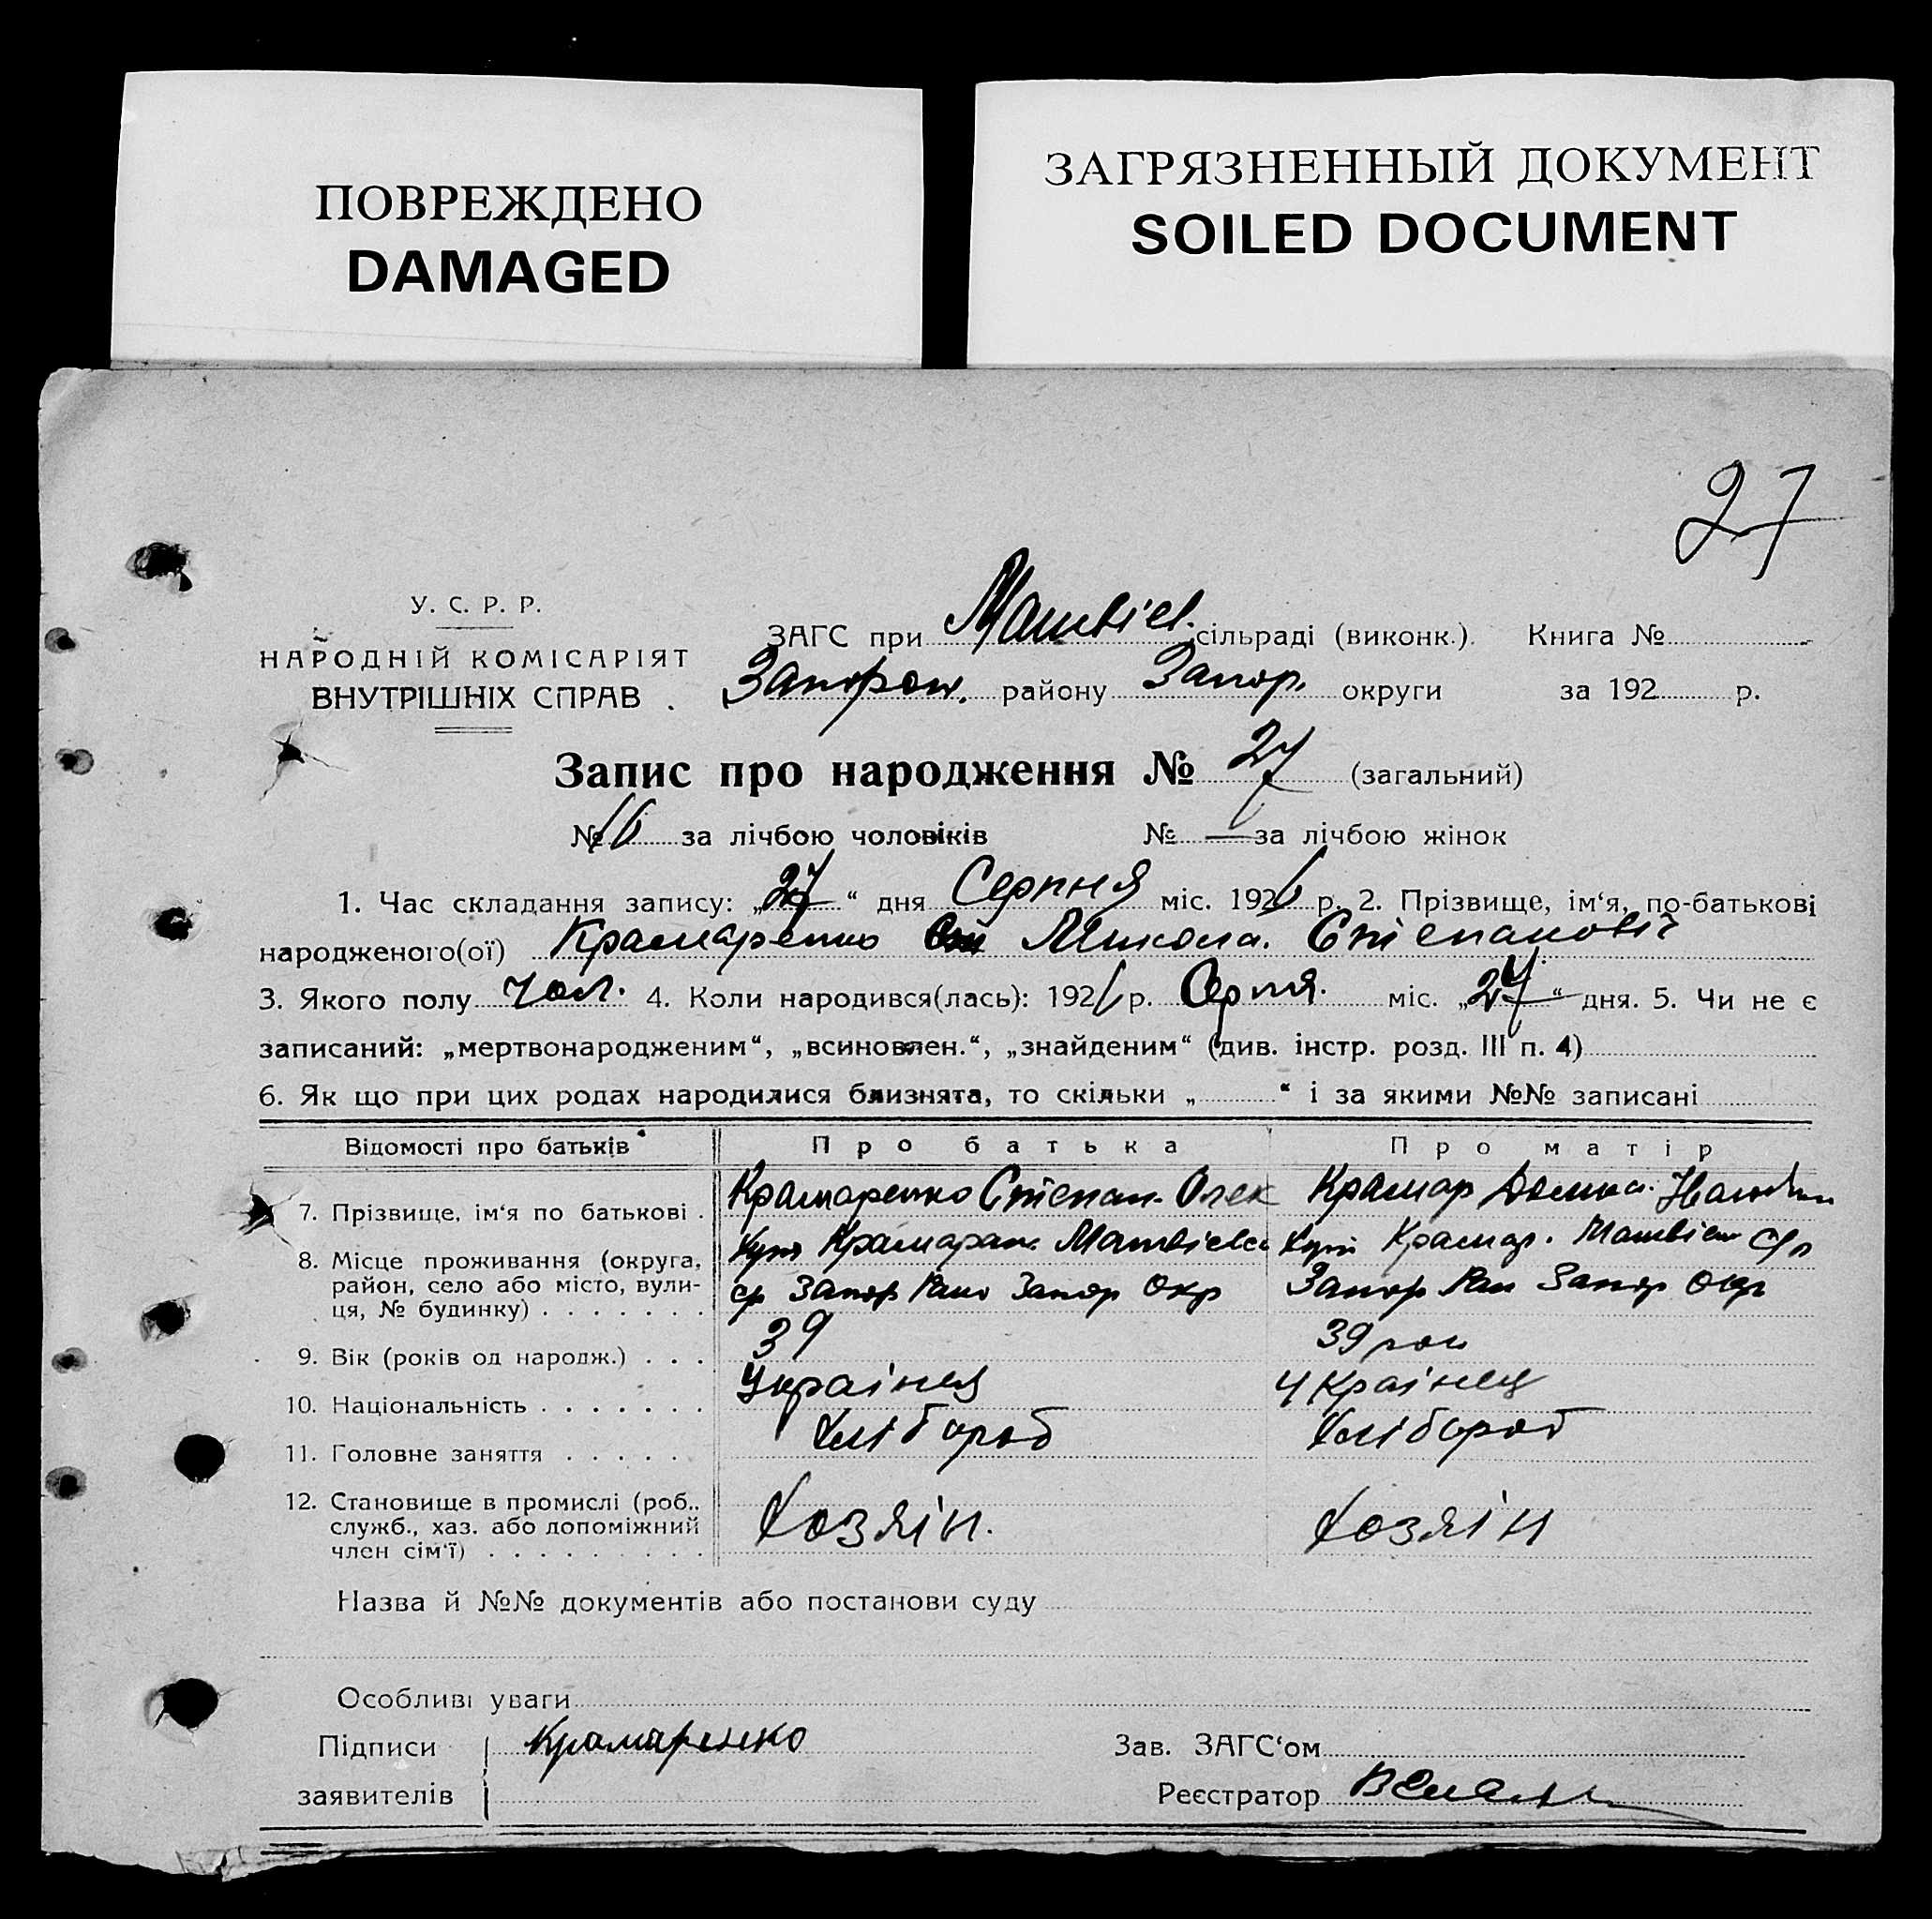 ПОВРЕЖДЕНО
DAMAGED
ЗАГРЯЗНЕННЫЙ ДОКУМЕНТ
SOILED DOCUMENT
27
У. С. Р. Р.
НАРОДНІЙ КОМІСАРІЯТ
ВНУТРІШНІХ СПРАВ
ЗАГС при Матвієв. сільраді (виконк.) Книга №
Запорож. району Запор. округи за 192 р.
Запис про народження № 27 (загальний)
№ 16 за лічбою чоловіків № — за лічбою жінок
1. Час складання запису: „27“ дня Серпня міс. 1926 р. 2. Прізвище, ім‘я, по-батькові
народженого(ої) Крамаренко Микола. Степановіч
3. Якого полу чол. 4. Коли народився(лась): 1926 р. Серпя. міс. „27“ дня. 5. Чи не є
записаний: „мертвонародженим“, „всиновлен.“, „знайденим“ (див. інстр. розд. III п. 4)
6. Як що при цих родах народилися близнята, то скільки „ “ і за якими №№ записані
Відомості про батьків Про батька Про матір
7. Прізвище, ім‘я по батькові . Крамаренко Степан. Олек Крамар Домка.
8. Місце проживання (округа, Хут Матвієвс Хут Крамар. Матвієв с/р
район, село або місто, вули- ср Запор Запор Окр Запор Запор Окр
ця, № будинку) . . . . . . .
9. Вік (років од народж.) . . . 39 39 рок
10. Національність . . . . . . . Українец Українец
11. Головне заняття . . . . . Хлібороб Хлібороб
12. Становище в промислі (роб.. Хозяін. Хозяін
служб., хаз. або допоміжний
член сім‘ї) . . . . . . . . .
Назва й №№ документів або постанови суду
Особливі уваги
Підписи Крамаренко Зав. ЗАГС‘ом
заявителів Реєстратор